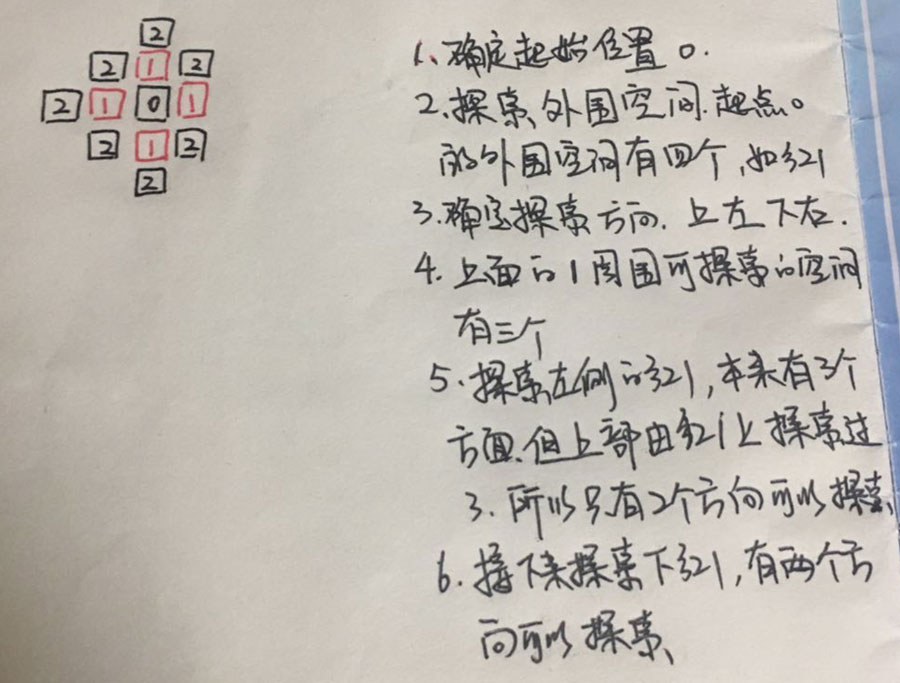 2
2 1 2
2 1 0 1
2 1 2
2
1、确定起始位置0.
2、探索外围空间.起点0
的外围空间有四个,如红1
3、确定探索方向.上左下右.
4.上面的1周围可探索的空间
有三个
5.探索左侧的红1,本来有3个
方面.但上部由红1上探索过
3.所以只有2个方向可以探索
6.接下来探索下红1,有两个方
向可以探索、